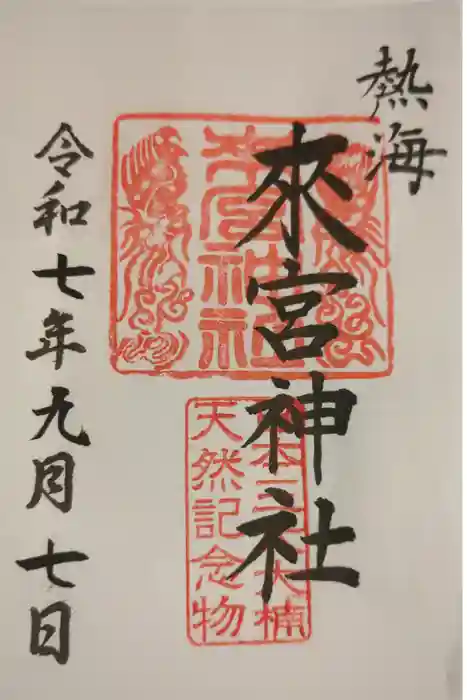 熱海
來宮神社
來宮神社
日本三大楠
天然記念物
令和七年九月七日